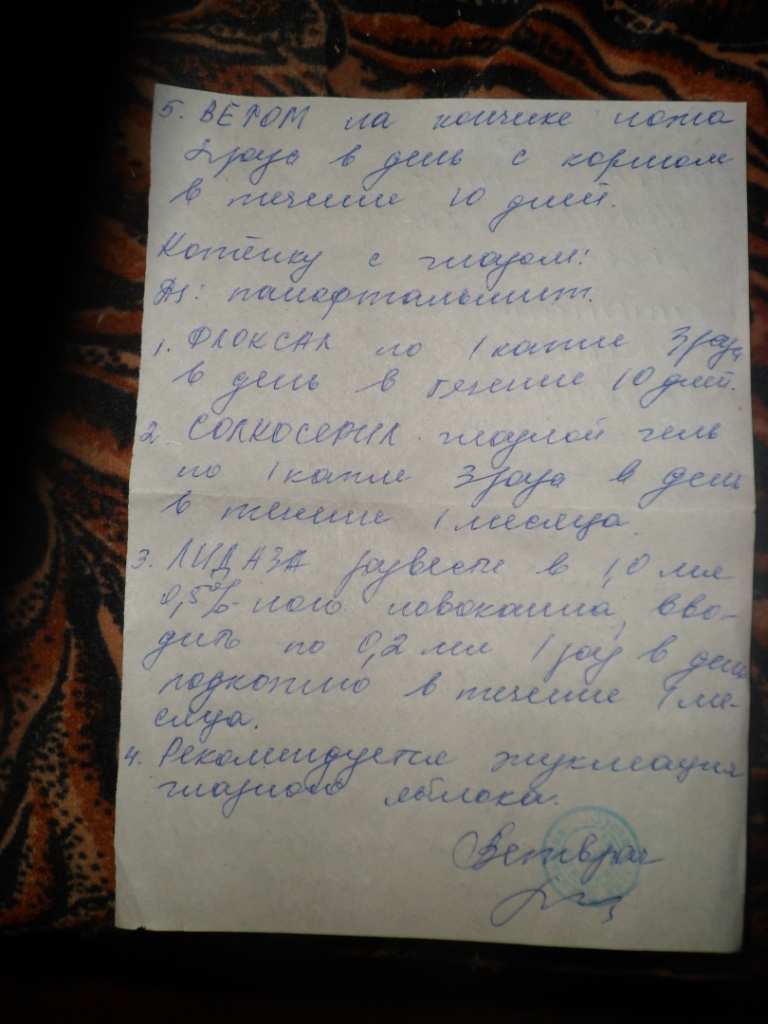 5. ВЕТОМ на кончике ножа
2 раза в день с кормом
в течение 10 дней.
Котёнку с глазом:
Ds: панофтальмит.
1. ФЛОКСАЛ по 1 капле 3 раза
в день в течение 10 дней.
2 СОЛКОСЕРИЛ глазной гель
по 1 капле 3 раза в день
в течение 1 месяца.
3. ЛИДАЗА развести в 1,0 мл
0,5%-ного новокаина, вво-
дить по 0,2 мл 1 раз в день
подкожно в течение 1 ме-
сяца.
4. Рекомендуется энуклеация
глазного яблока.
Ветврач